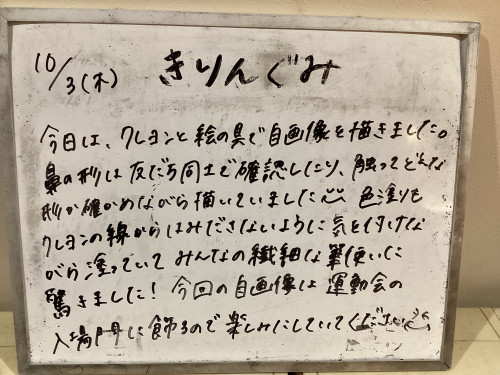 10/3(木) きりんぐみ
今日は、クレヨンと絵の具で自画像を描きました。
鼻の形は友だち同士で確認したり、触ってどんな
形か確かめながら描いていました 色塗りも
クレヨンの線からはみださないように気を付けな
がら塗っていて みんなの繊細な筆使いに
驚きました! 今回の自画像は運動会の
入場門に飾るので楽しみにしていてください